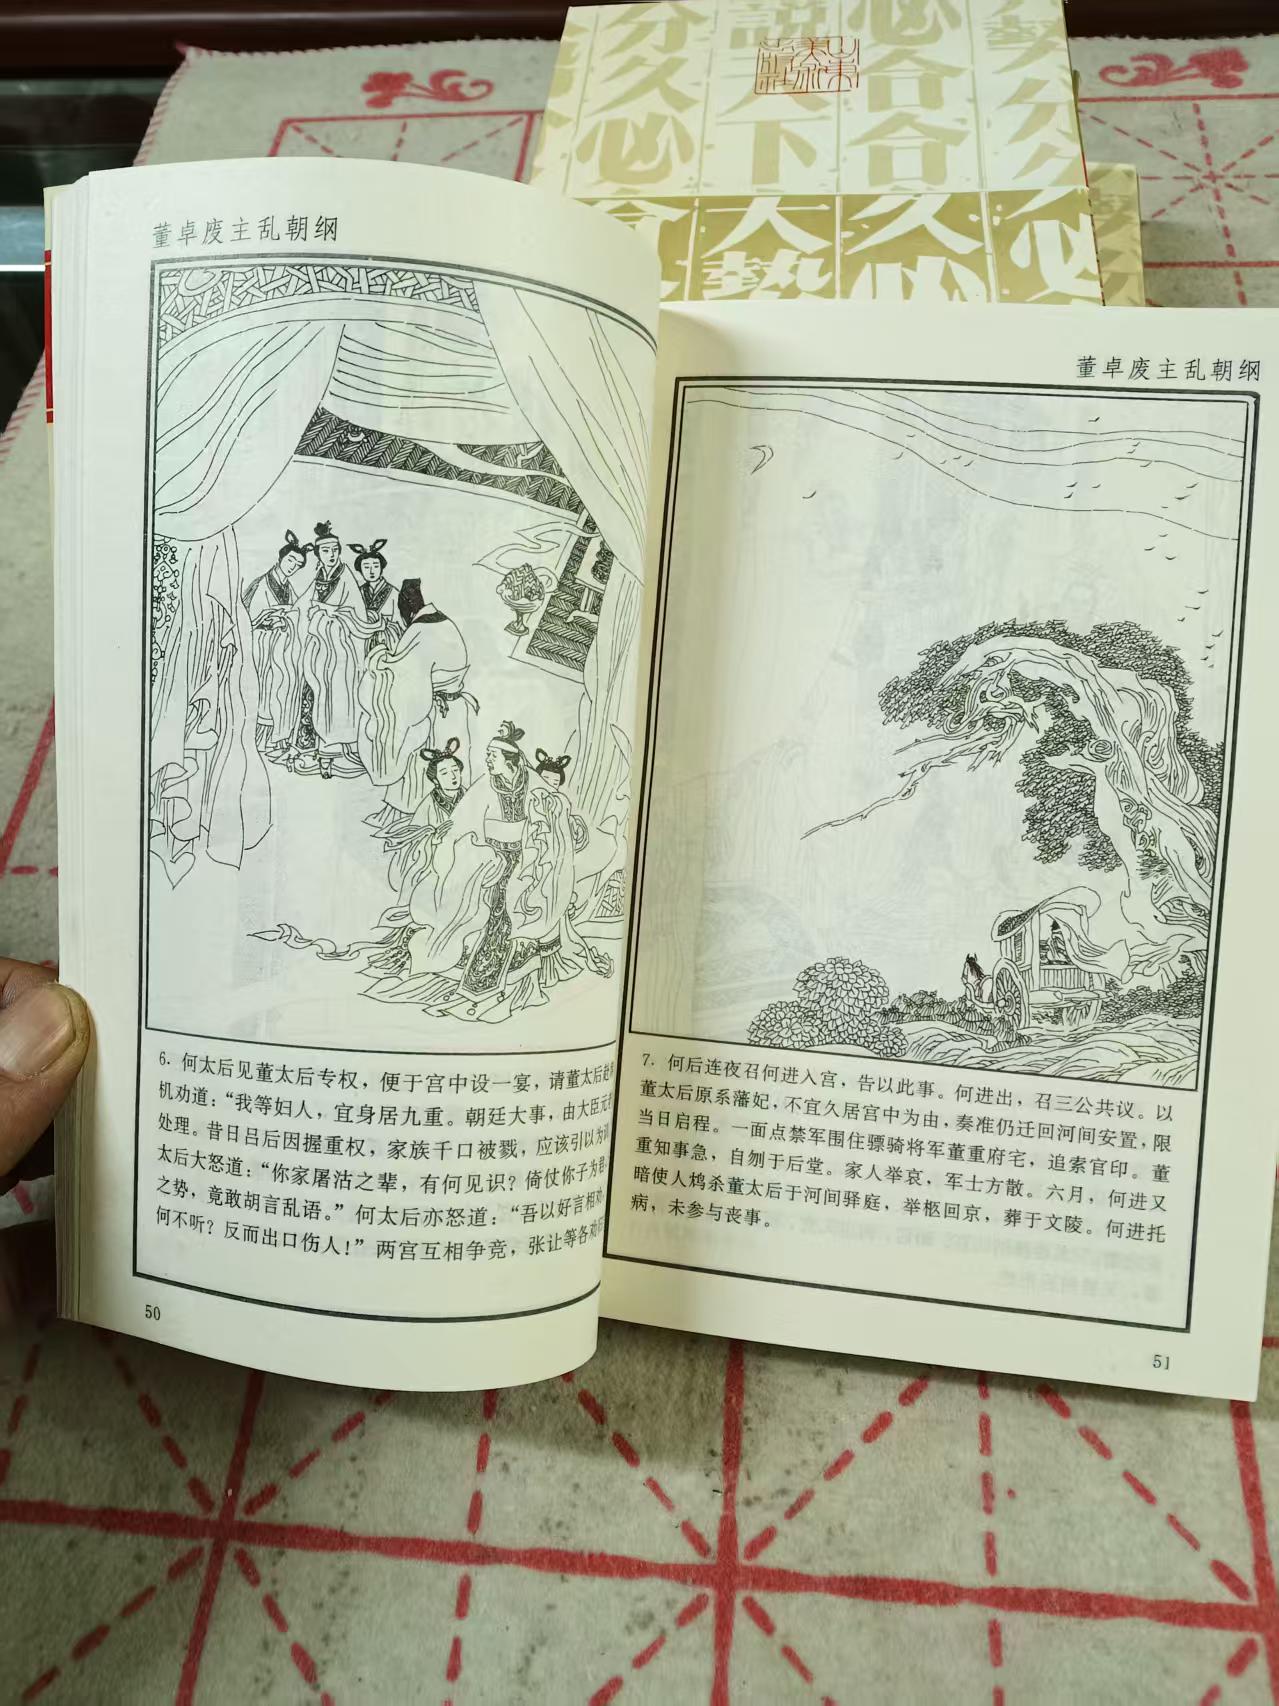 分久必
說天下
必合合
勢分久
山東美術
大勢
久必
必
董卓废主乱朝纲
6. 何太后见董太后专权，便于宫中设一宴，请董太后赴
机劝道：“我等妇人，宜身居九重。朝廷大事，由大臣元
处理。昔日吕后因握重权，家族千口被戮，应该引以为
太后大怒道：“你家屠沽之辈，有何见识？倚仗你子为君
之势，竟敢胡言乱语。”何太后亦怒道：“吾以好言相劝，
何不听？反而出口伤人！”两宫互相争竞，张让等各劝
50
董卓废主乱朝纲
7. 何后连夜召何进入宫，告以此事。何进出，召三公共议。以
董太后原系藩妃，不宜久居宫中为由，奏准仍迁回河间安置，限
当日启程。一面点禁军围住骠骑将军董重府宅，追索官印。董
重知事急，自刎于后堂。家人举哀，军士方散。六月，何进又
暗使人鸩杀董太后于河间驿庭，举柩回京，葬于文陵。何进托
病，未参与丧事。
51